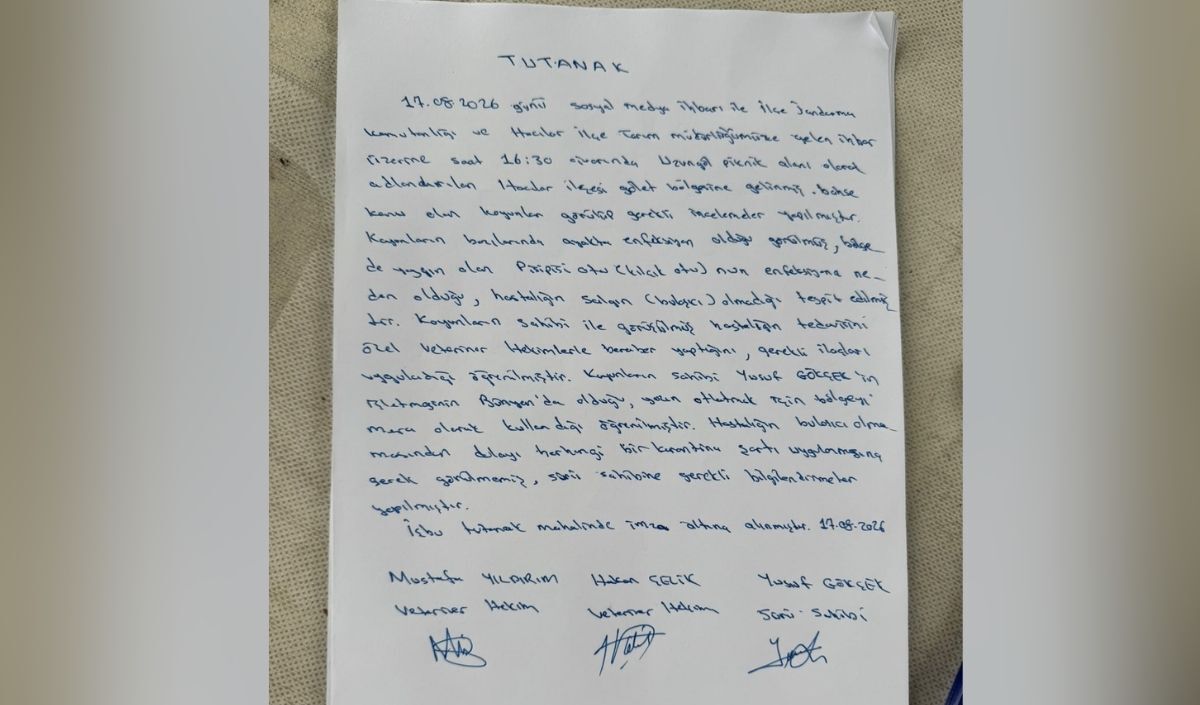 TUTANAK
17.08.2026 günü sosyal medya ihbarı ile İlçe Jandarma
komutanlığı ve Hacılar İlçe Tarım müdürlüğümüze gelen ihbar
üzerine saat 16:30 civarında Uzungöl piknik alanı olarak
adlandırılan Hacılar ilçesi gölet bölgesine gelinmiş. bahse
konu olan koyunlar görülüp gerekli incelemeler yapılmıştır.
Koyunların bazılarında ayakta enfeksiyon olduğu görülmüş, bölge-
de yaygın olan Pisipisi otu (kılçık otu) nun enfeksiyona ne-
den olduğu, hastalığın salgın (bulaşıcı) olmadığı tespit edilmiş
tir. Koyunların sahibi ile görüşülmüş hastalığın tedavisini
özel Veteriner Hekimlerle beraber yaptığını, gerekli ilaçları
uyguladığı öğrenilmiştir. Koyunların sahibi Yusuf GÖKÇEK'in
işletmenin Bünyan'da olduğu, yazın otlatmak için bölgeyi
mera olarak kullandığı öğrenilmiştir. Hastalığın bulaşıcı olma-
masından dolayı herhangi bir karantina şartı uygulanmasına
gerek görülmemiş, sürü sahibine gerekli bilgilendirmeler
yapılmıştır.
İşbu tutanak mahalinde imza altına alınmıştır. 17.08.2026
Mustafa YILDIRIM Hakan ÇELİK Yusuf GÖKÇEK
Veteriner Hekim Veteriner Hekim Sürü Sahibi